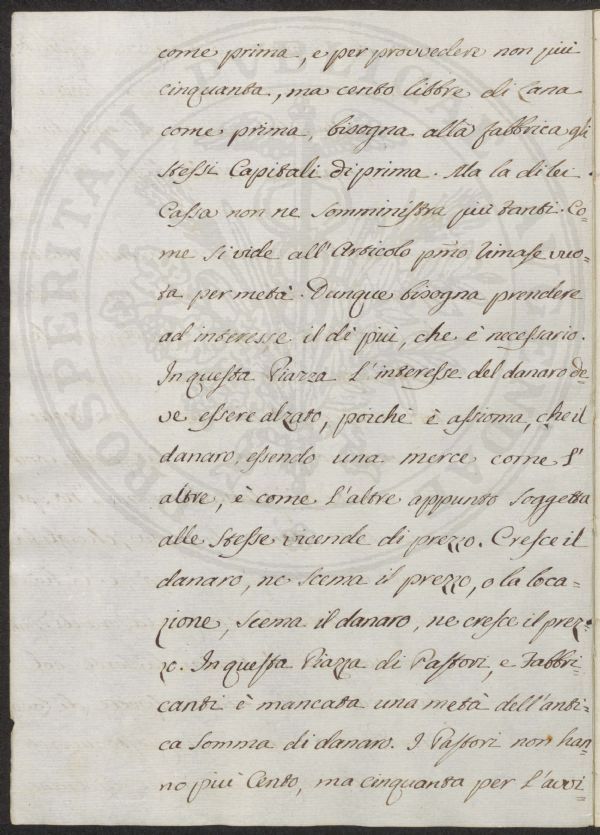 come prima, e per provvedere non più
cinquanta, ma cento libbre di Lana
come prima, bisogna alla fabbrica gli
stessi Capitali di prima. Ma la di lei
Cassa non ne somministra più tanti. Co=
me si vide all'Articolo pmo rimase vuo=
ta per metà. Dunque bisogna prendere
ad interesse il di più, che è necessario.
In questa Piazza l'interesse del danaro de=
ve essere alzato, poichè è assioma, che il
danaro, essendo una merce come l'
altre, è come l'altre appunto soggetta
alle stesse vicende di prezzo. Cresce il
danaro, ne scema il prezzo, o la loca=
zione, scema il danaro, ne cresce il prez=
zo. In questa Piazza di Pastori, e Fabbri
canti è mancata una metà dell'anti=
ca somma di danaro. I Pastori non han
no più Cento, ma cinquanta per l'avvi=
PROSPERITATI PUBLICAE AUGENDAE